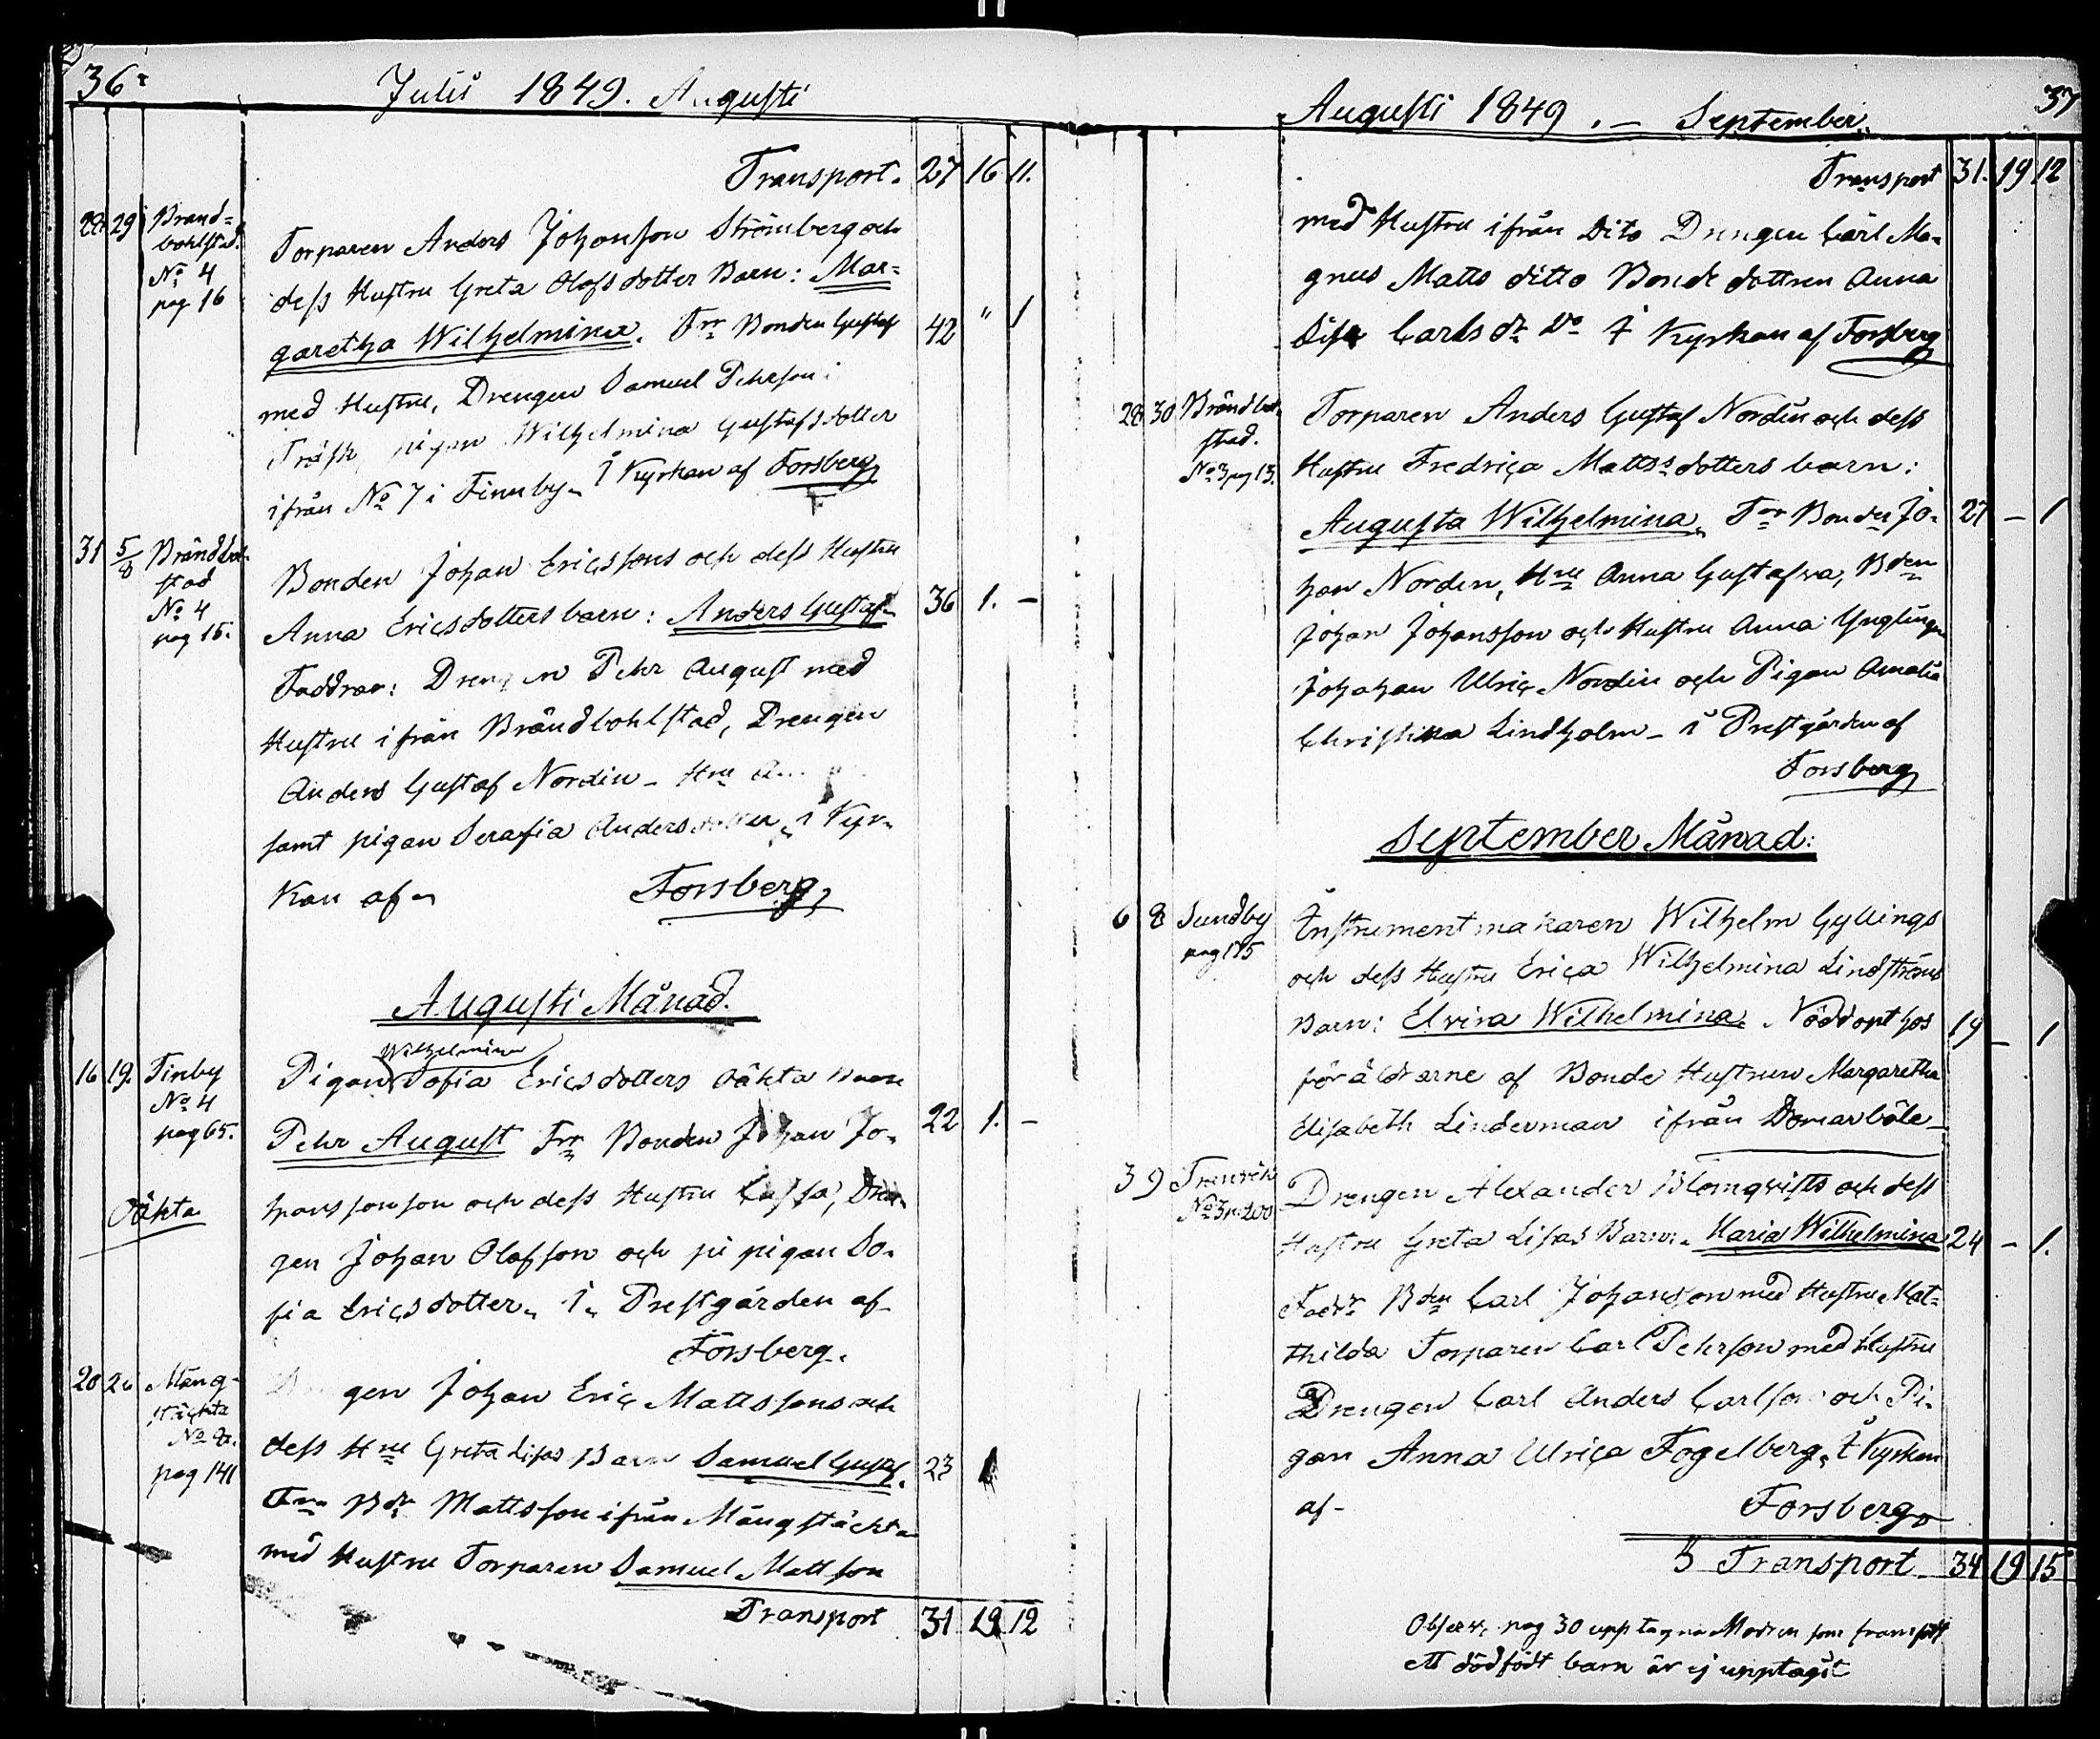 36.
Julii 1849. Augusti
Transport. 27 16 11.
28 29 Brand=
bohlstad.
No 4
pag 16
Torparen Anders Johansson Strömberg och
dess Hustru Greta Olofsdotter Barn: Mar=
garetha Wilhelmina. Frr Bonden Gustaf 42 " 1
med Hustru, Drengen Samuel Pehrson i
Träsk, pigan Wilhelmina Gustafsdotter
ifrån No 7 i Finnby. I Kyrkan af Forsberg
31 5/8 Brändbol-
stad
No 4
pag 15.
Bonden Johan Ericssons och dess Hustru
Anna Ericsdotters barn: Anders Gustaf 36 1. -
Faddrar: Drengen Pehr August med
Hustru ifrån Brändbohlstad, Drengen
Anders Gustaf Nordin - Hru
samt pigan Serafia Andersdotter, i Kyr-
kan af Forsberg,
Augusti Månad.
16 19. Finby
No 4
pag 65.
Oäkta
Wilhelmina
Pigan Sofia Ericsdotters oäkta Barn
Pehr August Frr Bonden Johan Jo- 22 1. -
hanssonson och dess Hustru Cajsa, Dren-
gen Johan Olofsson och pi pigan So-
fia Ericsdotter. I Prestgården af
Forsberg.
20 26 Mång-
stäckta
No 8.
pag 141
Drengen Johan Eric Mattssons och
dess Hru Greta Lisas Barn Samuel Gustaf. 23 1
Frr Bdn Mattsson ifrån Mångstäckta
med Hustru Torparen Samuel Mattson
Transport 31 19 12
37
Augusti 1849. - September.
Transport 31. 19 12
med Hustru ifrån Dito Drengen Carl Ma-
gnus Matts ditto Bonde dottren Anna
Lisa Carls dr Do I Kyrkan af Forsberg
28 30 Brändbol-
stad.
No 3 pag 13.
Torparen Anders Gustaf Nordin och dess
Hustru Fredrica Mattsdotters barn:
Augusta Wilhelmina. Frr Bonden Jo- 27 - 1
han Norden, Hru Anna Gustafva, Bden
Johan Johansson och Hustru Anna Ynglingen
Johahan Ulric Nordin och Pigan Amalia
Christina Lindholm - i Prestgården af
Forsberg
September Månad:
6 8 Sundby
pag 175
Instrumentmakaren Wilhelm Gyllings
och dess Hustru Erica Wilhelmina Lindströms
Barn: Elvira Wilhelmina. Nöddopt hos 19 - 1
föräldrarne af Bonde Hustrun Margaretha
Elisabeth Linderman ifrån Domarböle
3 9 Tranvik
No 3 p. 200
Drengen Alexander Blomqvists och dess
Hustru Greta Lisas Barn. Maria Wilhelmina 24 - 1.
Fadr Bden Carl Johansson med Hustru, Mat=
thilda Torparen Carl Pehrson med Hustru
Drengen Carl Anders Carlson och Pi-
gan Anna Ulrica Fogelberg. I Kyrkan
af - Forsberg
Transport 34 19 15
Observ. pag 30 upptagna Modren som framfödt
ett dödfödt barn är ej upptagit